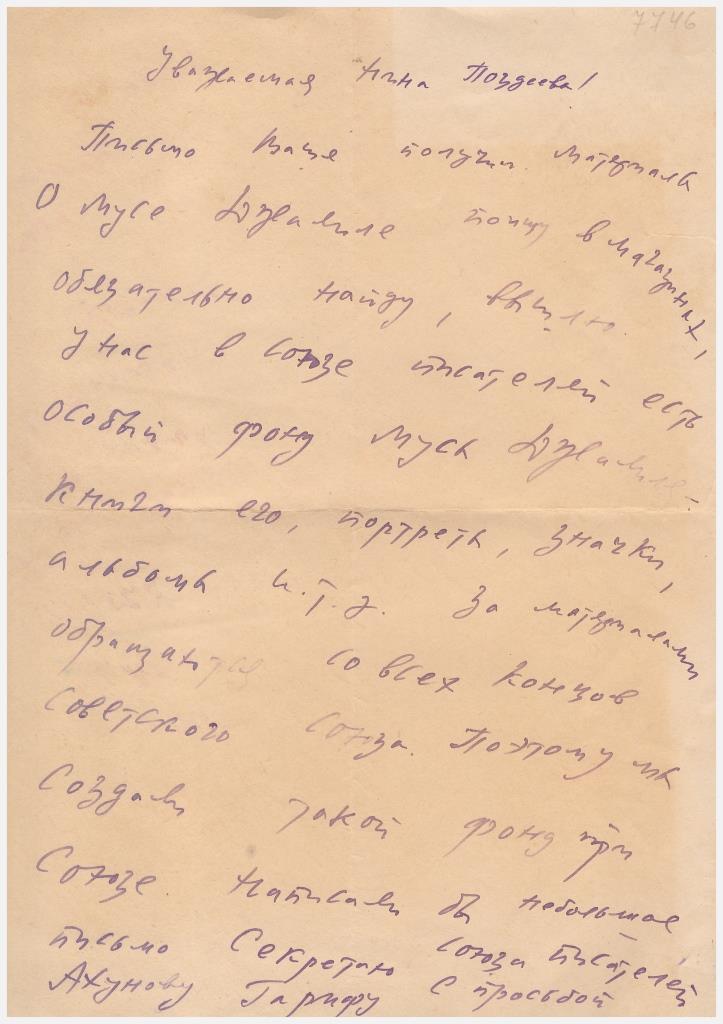 7746
Уважаемая Нина Поздеева!
Письмо Ваше получил. Материалы
О Мусе Джалиле поищу в магазинах,
обязательно найду, вышлю.
У нас в Союзе писателей есть
особый фонд Мусы Джалиля-
Книги его, портреты, значки,
альбомы и.т.д. За материалами
обращаются со всех концов
Советского Союза. Поэтому мы
Создали такой фонд при
Союзе. Написали бы небольшое
письмо Секретаю Союза писателей
Ахунову Гарифу с просьбой